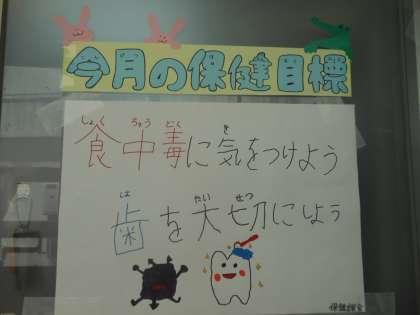 今月の保健目標
しょく ちゅう どく き
食中毒に気をつけよう
は たい せつ
歯を大切にしよう